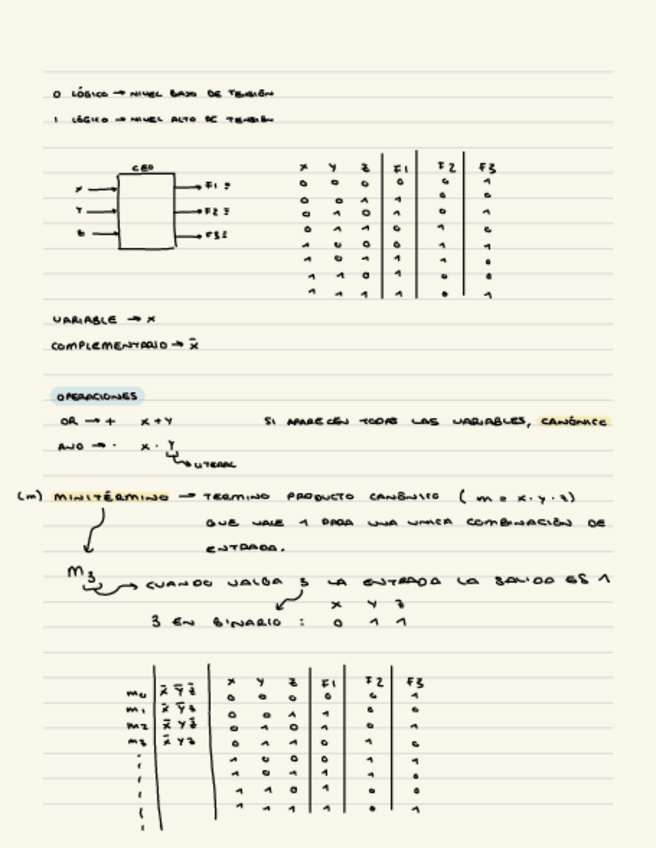 0 LÓGICO → NIVEL BAJO DE TENSIÓN
1 LÓGICO → NIVEL ALTO DE TENSIÓN
X Y Z F1 F2 F3
X → F1
Y → F2
Z → F3
0 0 0 0 0 1
0 0 1 0 0 0
0 1 0 0 0 1
0 1 1 0 1 0
1 0 0 1 1 1
1 0 1 1 1 0
1 1 0 1 0 0
1 1 1 1 0 1
VARIABLE → X
COMPLEMENTARIO → X̄
OPERACIONES
OR → + X+Y SI APARECEN TODAS LAS VARIABLES, CANÓNICO
AND → · X · Y
LITERAL
(m) MINITÉRMINO → TERMINO PRODUCTO CANÓNICO ( m = X · Y · Z )
QUE VALE 1 PARA UNA UNICA COMBINACIÓN DE
ENTRADA.
m3 → CUANDO VALGA 3 LA ENTRADA LA SALIDA ES 1
X Y Z
3 EN BINARIO : 0 1 1
X Y Z F1 F2 F3
m0 X̄ Ȳ Z̄ 0 0 0 0 0 1
m1 X̄ Ȳ Z 0 0 1 0 0 0
m2 X̄ Y Z̄ 0 1 0 0 0 1
m3 X̄ Y Z 0 1 1 0 1 0
1 0 0 1 1 1
1 0 1 1 1 0
1 1 0 1 0 0
1 1 1 1 0 1